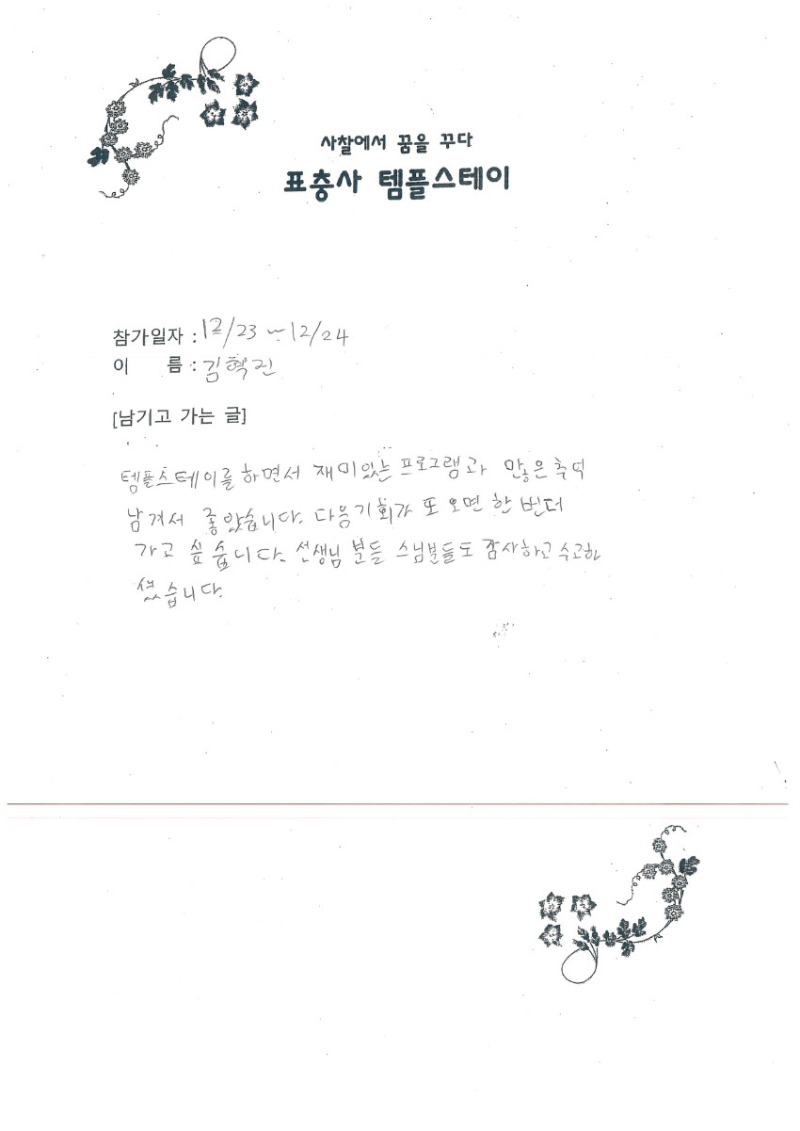 사찰에서 꿈을 꾸다
표충사 템플스테이
참가일자 : 12/23 ~ 12/24
이 름 : 김혁진
[남기고 가는 글]
템플스테이를 하면서 재미있는 프로그램과 많은 추억
남겨서 좋았습니다. 다음기회가 또 오면 한 번더
가고 싶습니다. 선생님 분들 스님분들도 감사하고 수고하
셨습니다.